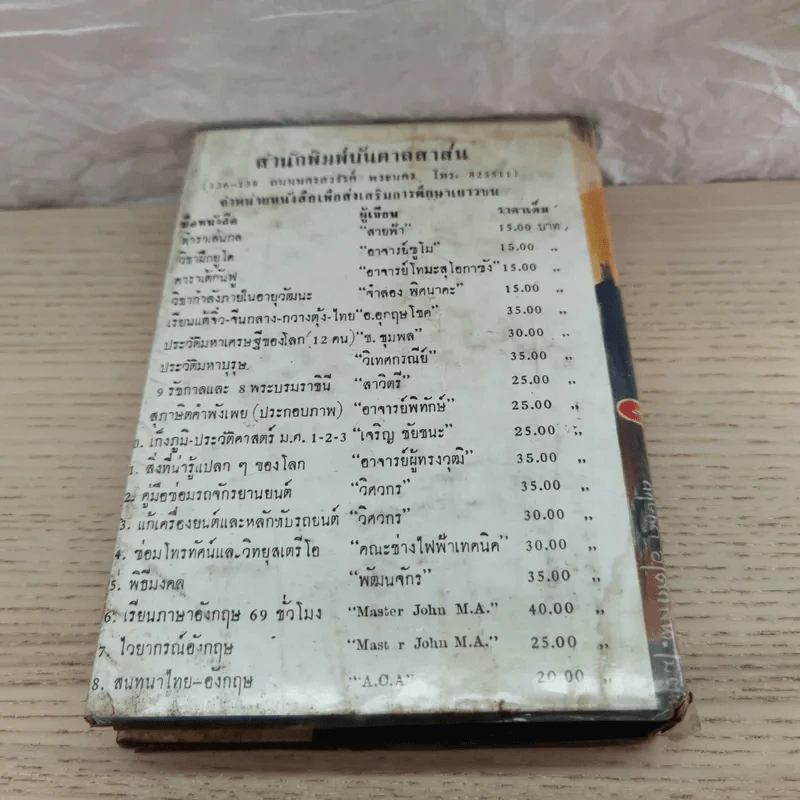 สำนักพิมพ์บันดาลสาส์น
(136-138 ถนนนครสวรรค์ พระนคร โทร. 825511)
จำหน่ายหนังสือเพื่อส่งเสริมการศึกษาเยาวชน
ชื่อหนังสือ ผู้เขียน ราคาเต็ม
ตำราเล่นกล "สายฟ้า" 15.00 บาท
วิชาฝึกยูโด "อาจารย์ซูโม" 15.00 ,,
คาราเต้กันฟู "อาจารย์โทมะสุโอกาซัง" 15.00 ,,
วิชากำลังภายในอายุวัฒนะ "จำลอง พิศนาคะ" 15.00 ,,
เรียนแต้จิ๋ว-จีนกลาง-กวางตุ้ง-ไทย "อ.อุกฤษโชค" 35.00 ,,
ประวัติมหาเศรษฐีของโลก (12 คน) "ช. ชุมพล" 30.00 ,,
ประวัติมหาบุรุษ "วิเทศกรณีย์" 35.00 ,,
9 รัชกาลและ 8 พระบรมราชินี "สาวิตรี" 25.00 ,,
สุภาษิตคำพังเพย (ประกอบภาพ) "อาจารย์พิทักษ์" 25.00 ,,
0. เก็งภูมิ-ประวัติศาสตร์ ม.ศ. 1-2-3 "เจริญ ชัยชนะ" 25.00 ,,
1. สิ่งที่น่ารู้แปลก ๆ ของโลก "อาจารย์ผู้ทรงวุฒิ" 35.00 ,,
2. คู่มือซ่อมรถจักรยานยนต์ "วิศวกร" 35.00 ,,
3. แก้เครื่องยนต์และหลักขับรถยนต์ "วิศวกร" 30.00 ,,
4. ซ่อมโทรทัศน์และวิทยุสเตริโอ "คณะช่างไฟฟ้าเทคนิค" 30.00 ,,
5. พิธีมงคล "พัฒนจักร" 35.00 ,,
6. เรียนภาษาอังกฤษ 69 ชั่วโมง "Master John M.A." 40.00 ,,
7. ไวยากรณ์อังกฤษ "Master John M.A." 25.00 ,,
8. สนทนาไทย-อังกฤษ "A.C.A" 20.00 ,,